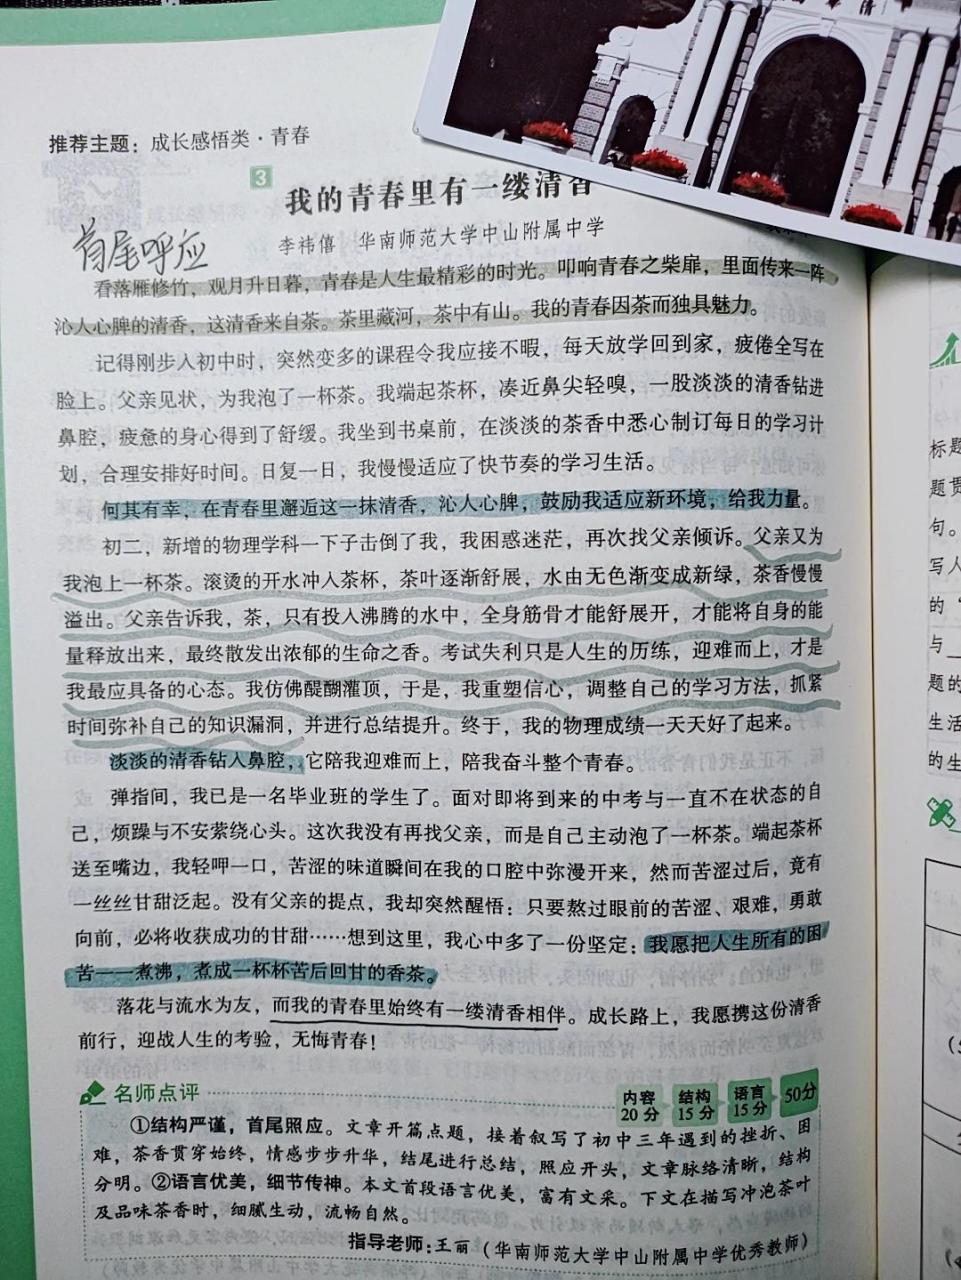 推荐主题：成长感悟类·青春
3
我的青春里有一缕清香
首尾呼应
李祎僖 华南师范大学中山附属中学
看落雁修竹，观月升日暮，青春是人生最精彩的时光。叩响青春之柴扉，里面传来一阵
沁人心脾的清香，这清香来自茶。茶里藏河，茶中有山。我的青春因茶而独具魅力。
记得刚步入初中时，突然变多的课程令我应接不暇，每天放学回到家，疲倦全写在
脸上。父亲见状，为我泡了一杯茶。我端起茶杯，凑近鼻尖轻嗅，一股淡淡的清香钻进
鼻腔，疲惫的身心得到了舒缓。我坐到书桌前，在淡淡的茶香中悉心制订每日的学习计
划，合理安排好时间。日复一日，我慢慢适应了快节奏的学习生活。
何其有幸，在青春里邂逅这一抹清香，沁人心脾，鼓励我适应新环境，给我力量。
初二，新增的物理学科一下子击倒了我，我困惑迷茫，再次找父亲倾诉。父亲又为
我泡上一杯茶。滚烫的开水冲入茶杯，茶叶逐渐舒展，水由无色渐变成新绿，茶香慢慢
溢出。父亲告诉我，茶，只有投入沸腾的水中，全身筋骨才能舒展开，才能将自身的能
量释放出来，最终散发出浓郁的生命之香。考试失利只是人生的历练，迎难而上，才是
我最应具备的心态。我仿佛醍醐灌顶，于是，我重塑信心，调整自己的学习方法，抓紧
时间弥补自己的知识漏洞，并进行总结提升。终于，我的物理成绩一天天好了起来。
淡淡的清香钻入鼻腔，它陪我迎难而上，陪我奋斗整个青春。
弹指间，我已是一名毕业班的学生了。面对即将到来的中考与一直不在状态的自
己，烦躁与不安萦绕心头。这次我没有再找父亲，而是自己主动泡了一杯茶。端起茶杯
送至嘴边，我轻呷一口，苦涩的味道瞬间在我的口腔中弥漫开来，然而苦涩过后，竟有
一丝丝甘甜泛起。没有父亲的提点，我却突然醒悟：只要熬过眼前的苦涩、艰难，勇敢
向前，必将收获成功的甘甜……想到这里，我心中多了一份坚定：我愿把人生所有的困
苦一一煮沸，煮成一杯杯苦后回甘的香茶。
落花与流水为友，而我的青春里始终有一缕清香相伴。成长路上，我愿携这份清香
前行，迎战人生的考验，无悔青春！
名师点评
内容 20分 结构 15分 语言 15分 50分
①结构严谨，首尾照应。文章开篇点题，接着叙写了初中三年遇到的挫折、困
难，茶香贯穿始终，情感步步升华，结尾进行总结，照应开头，文章脉络清晰，结构
分明。②语言优美，细节传神。本文首段语言优美，富有文采。下文在描写冲泡茶叶
及品味茶香时，细腻生动，流畅自然。
指导老师：王丽（华南师范大学中山附属中学优秀教师）
标题
题贯
句。
写人
的
与
题的
生活
的生